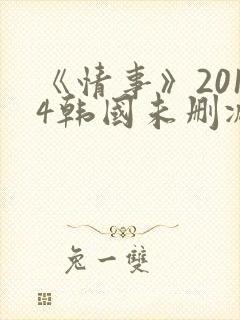 《情事》201
4韩國未删减
兔一雙